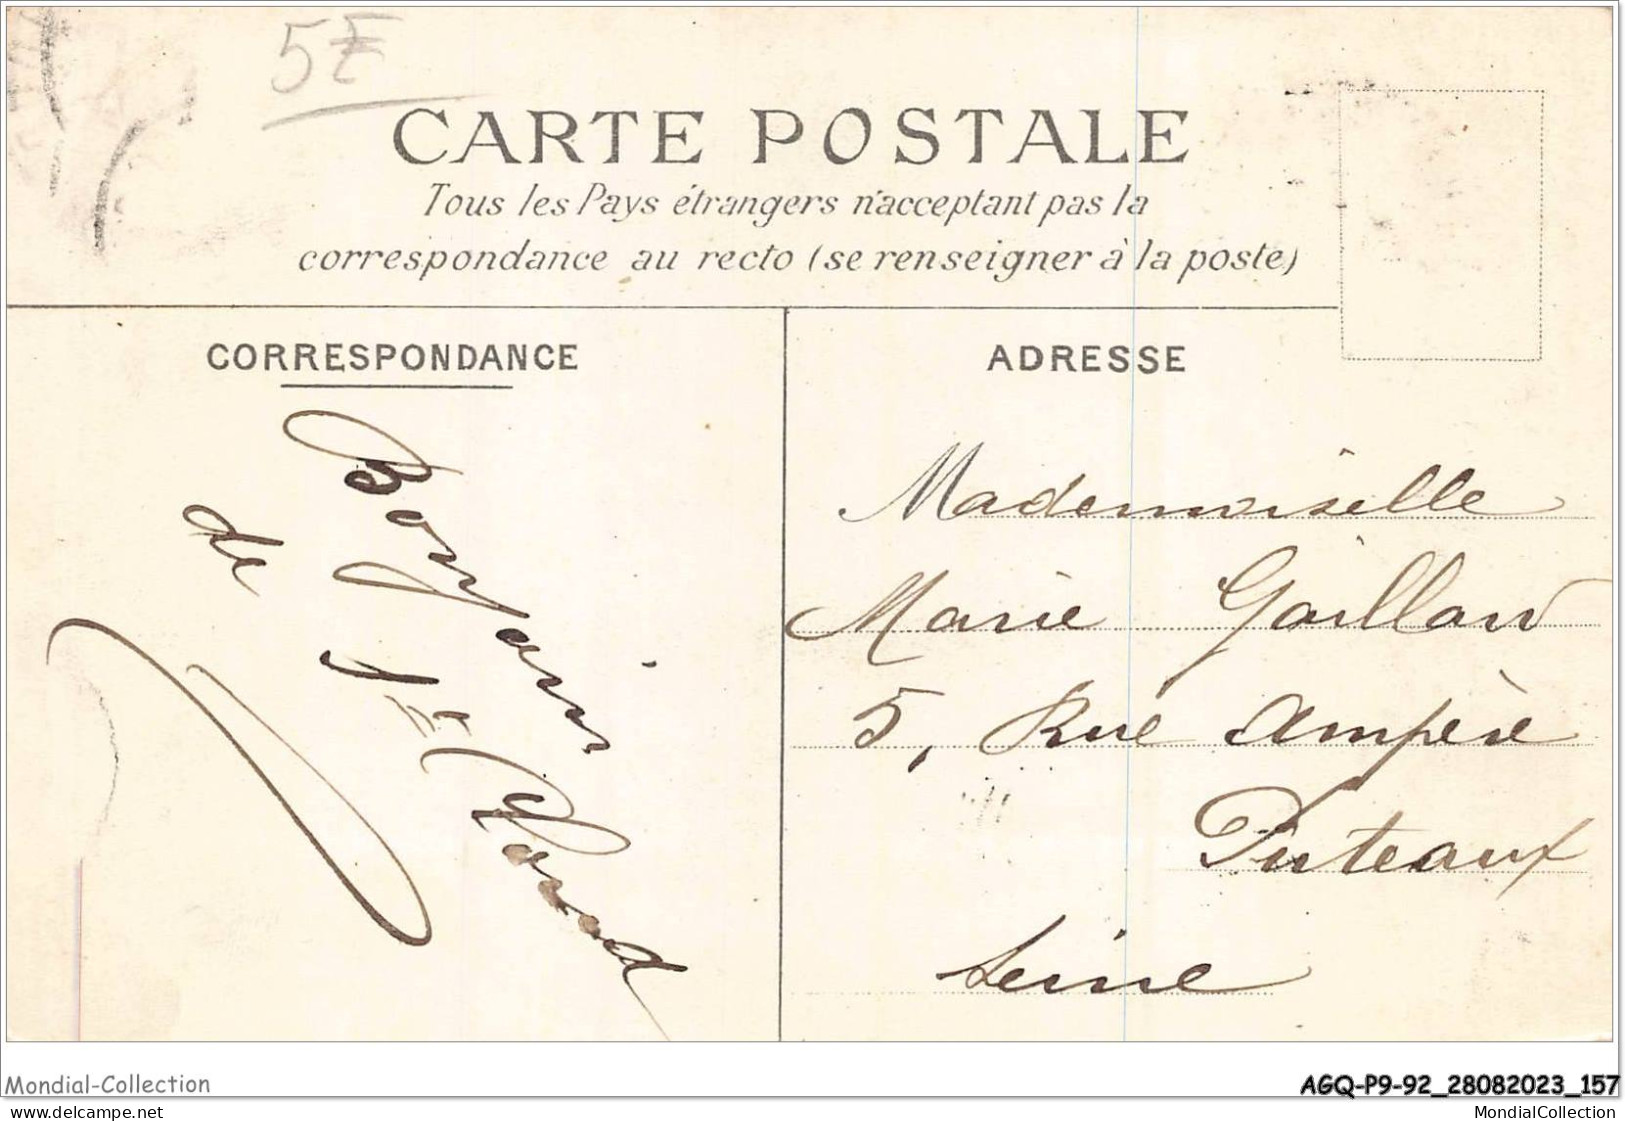 5F
CARTE POSTALE
Tous les Pays étrangers n'acceptant pas la
correspondance au recto (se renseigner à la poste)
CORRESPONDANCE
Bonjour
de
ADRESSE
Mademoiselle
Marie Gaillard
5, Rue Ampère
Puteaux
Seine
Mondial-Collection
AGQ-P9-92_28082023_157
www.delcampe.net
MondialCollection